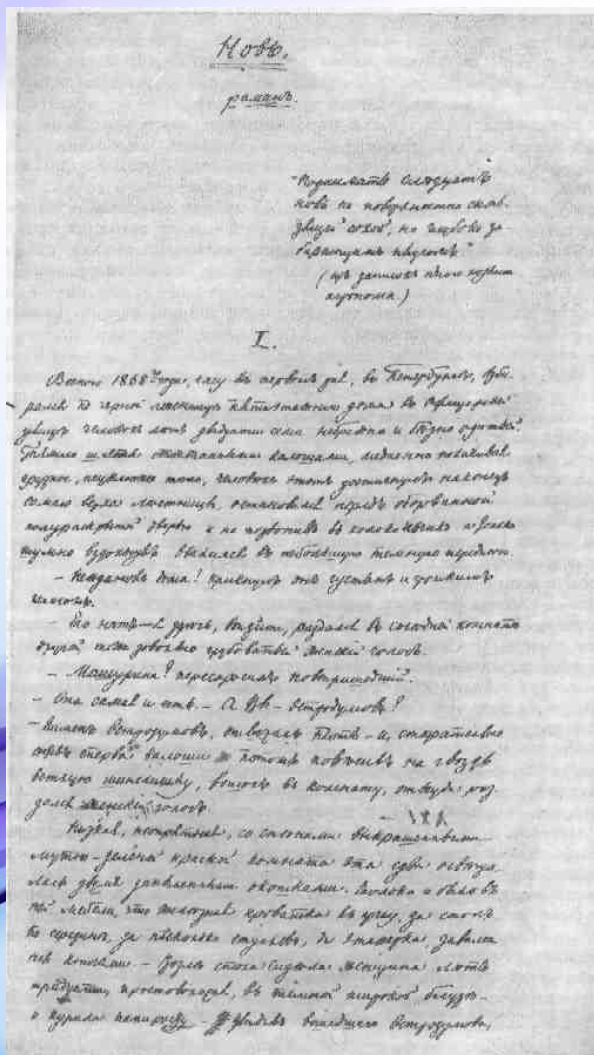 Новь.
романъ.
"Поднимать слѣдуетъ
новь не поверхностно сколь-
зящей сохой, но глубоко за-
бирающимъ плугомъ"
(изъ записокъ хозяина
агронома.)
I.
Весною 1868го года, часу въ первомъ дня, въ Петербургѣ, взби-
рался по черной лѣстницѣ пятиэтажнаго дома въ Офицерской
улицѣ человѣкъ лѣтъ двадцати семи небрежно и бѣдно одѣтый.
Тяжело шлепая стоптанными калошами, медленно покачивая
грузное, неуклюжее тѣло, человѣкъ этотъ достигнувъ наконецъ
самаго верха лѣстницы, остановился передъ оборванной
полураскрытой дверью и не позвонивъ въ колокольчикъ, а только
шумно вздохнувъ ввалился въ небольшую темную переднюю.
— Неждановъ дома? крикнулъ онъ густымъ и громкимъ
голосомъ.
— Его нѣтъ — я здѣсь, войдите, раздался въ сосѣдней комнатѣ
другой тоже довольно грубоватый женскій голосъ.
— Машурина? переспросилъ новопришедшій.
— Она самая и есть. — А Вы — Остродумовъ?
— Пименъ Остродумовъ, отвѣчалъ тотъ — и, старательно
снявъ сперва калоши, потомъ повѣсивъ на гвоздь
ветхую шинелишку, вошелъ въ комнату, откуда раз-
дался женскій голосъ.
Низкая, неопрятная, со стѣнами выкрашенными
мутно-зеленой краской комната эта едва освѣща-
лась двумя запыленными окошками. Только и было въ
ней мебели, что желѣзная кроватка въ углу, да столъ
по серединѣ, да нѣсколько стульевъ, да этажерка, завален-
ная книгами. — Возлѣ стола сидѣла женщина лѣтъ
тридцати, простоволосая, въ блузѣ —
и курила папиросу. — Увидѣвъ вошедшего Остродумова,